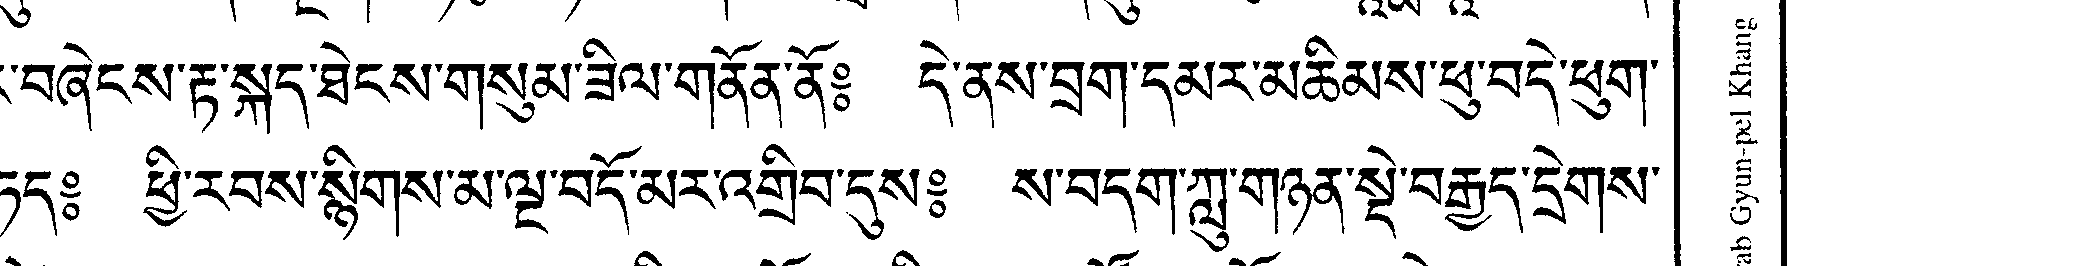 བཞེངས་རྟ་སྐད་ཐེངས་གསུམ་ཟིལ་གནོན་ནོ༔ དེ་ནས་བྲག་དམར་མཆིམས་ཕུ་བདེ་ཕུག་
༔ ཕྱི་རབས་སྙིགས་མ་ལྔ་བདོ་མར་འགྲིབ་དུས༔ ས་བདག་ཀླུ་གཉན་སྡེ་བརྒྱད་དྲེགས་
Gyun-pel Khang